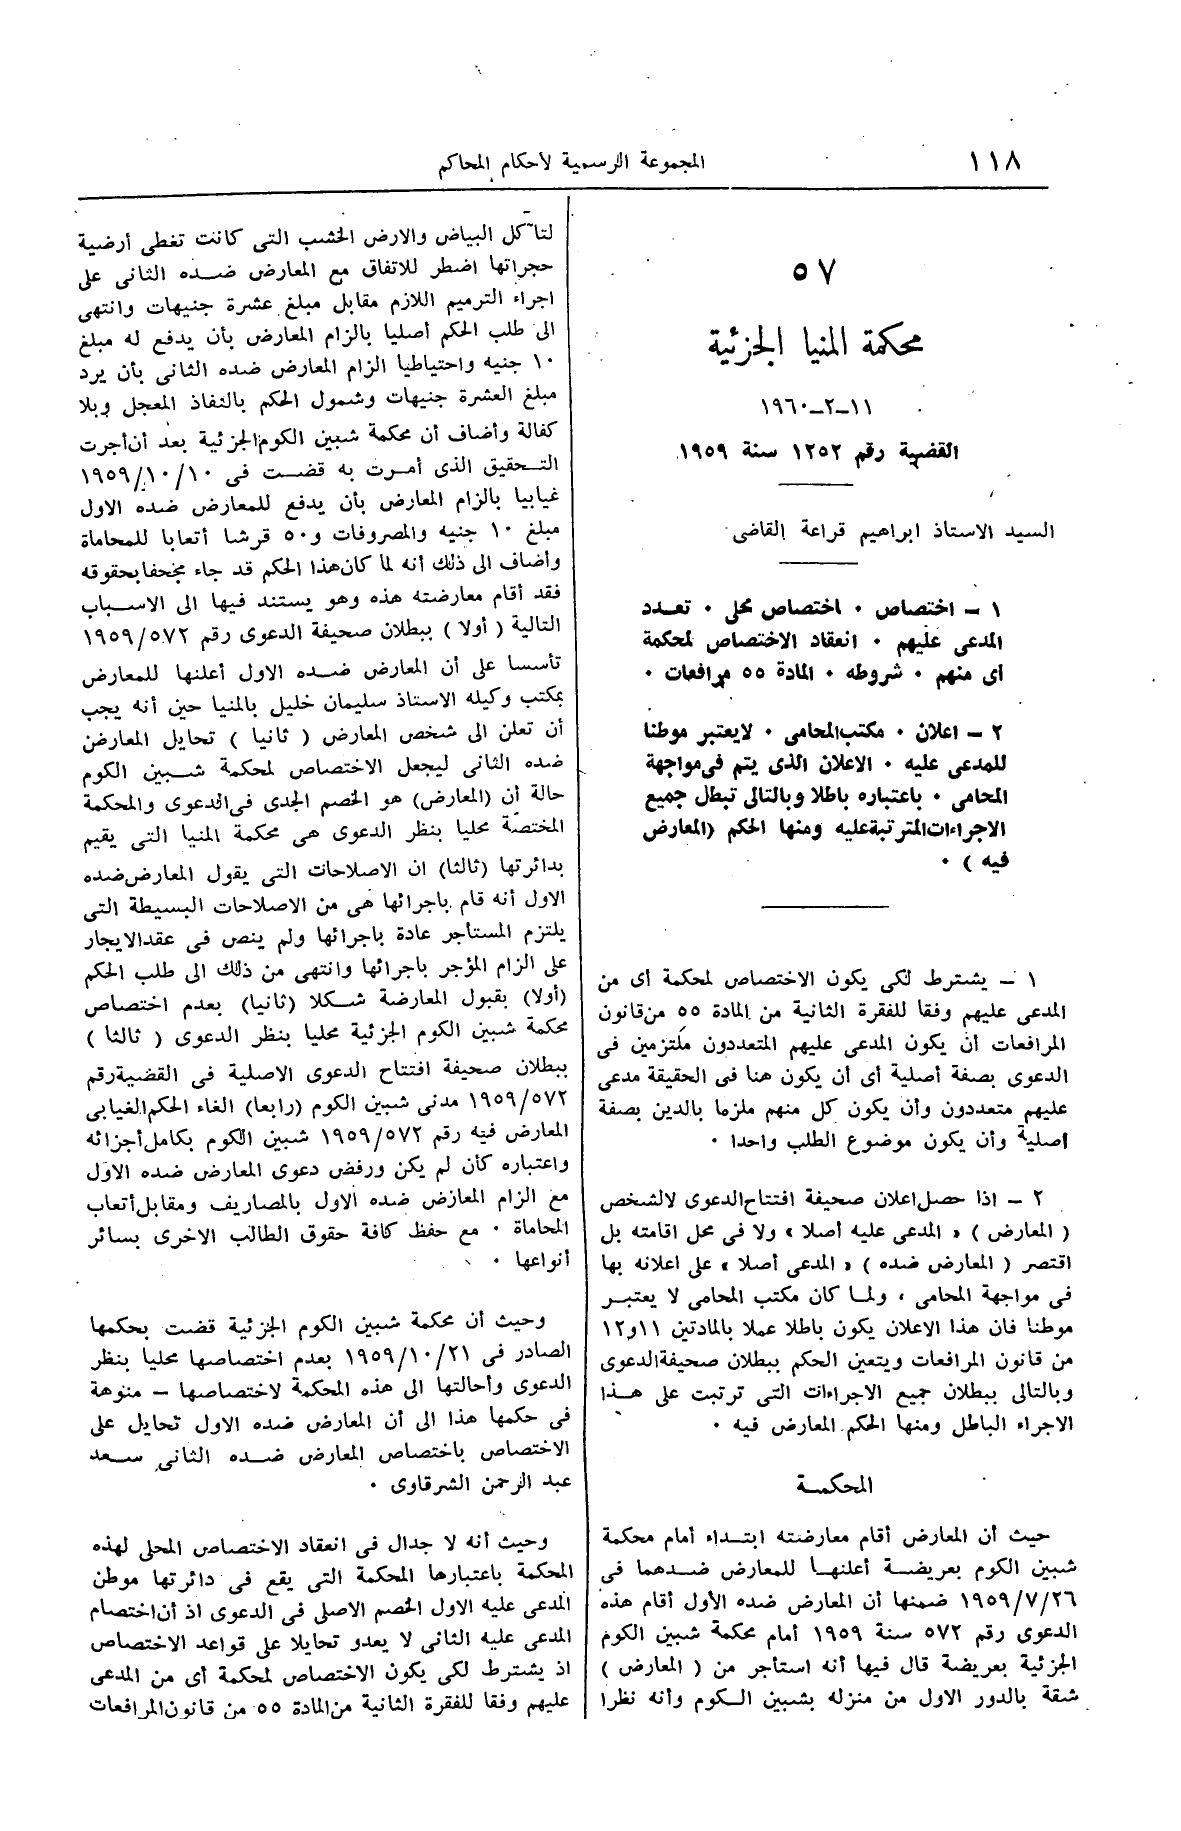 ١١٨
المجموعة الرسمية لأحكام المحاكم
٥٧
محكمة المنيا الجزئية
١١-٢-١٩٦٠
القضية رقم ١٢٥٢ سنة ١٩٥٩
السيد الاستاذ ابراهيم قراعة القاضى
١ - اختصاص ٠ اختصاص محلى ٠ تعدد
المدعى عليهم ٠ انعقاد الاختصاص لمحكمة
أى منهم ٠ شروطه ٠ المادة ٥٥ مرافعات ٠
٢ - اعلان ٠ مكتب المحامى ٠ لايعتبر موطنا
للمدعى عليه ٠ الاعلان الذى يتم فى مواجهة
المحامى ٠ باعتباره باطلا وبالتالى تبطل جميع
الاجراءات المترتبة عليه ومنها الحكم (المعارض
فيه ) ٠
١ - يشترط لكى يكون الاختصاص لمحكمة أى من
المدعى عليهم وفقا للفقرة الثانية من المادة ٥٥ من قانون
المرافعات أن يكون المدعى عليهم المتعددون ملتزمين فى
الدعوى بصفة أصلية أى أن يكون هنا فى الحقيقة مدعى
عليهم متعددون وأن يكون كل منهم ملزما بالدين بصفة
أصلية وأن يكون موضوع الطلب واحدا ٠
٢ - اذا حصل اعلان صحيفة افتتاح الدعوى لالشخص
( المعارض ) « المدعى عليه أصلا » ولا فى محل اقامته بل
اقتصر ( المعارض ضده ) « المدعى أصلا » على اعلانه بها
فى مواجهة المحامى ، ولما كان مكتب المحامى لا يعتبر
موطنا فان هذا الاعلان يكون باطلا عملا بالمادتين ١١و١٢
من قانون المرافعات ويتعين الحكم ببطلان صحيفة الدعوى
وبالتالى ببطلان جميع الاجراءات التى ترتبت على هذا
الاجراء الباطل ومنها الحكم المعارض فيه ٠
المحكمة
حيث أن المعارض أقام معارضته ابتداء أمام محكمة
شبين الكوم بعريضة أعلنها للمعارض ضدهما فى
١٩٥٩/٧/٢٦ ضمنها أن المعارض ضده الأول أقام هذه
الدعوى رقم ٥٧٢ سنة ١٩٥٩ أمام محكمة شبين الكوم
الجزئية بعريضة قال فيها أنه استأجر من ( المعارض )
شقة بالدور الاول من منزله بشبين الكوم وأنه نظرا
لتآكل البياض والارض الخشب التى كانت تغطى أرضية
حجراتها اضطر للاتفاق مع المعارض ضده الثانى على
اجراء الترميم اللازم مقابل مبلغ عشرة جنيهات وانتهى
الى طلب الحكم أصليا بالزام المعارض بأن يدفع له مبلغ
١٠ جنيه واحتياطيا الزام المعارض ضده الثانى بأن يرد
مبلغ العشرة جنيهات وشمول الحكم بالنفاذ المعجل وبلا
كفالة وأضاف أن محكمة شبين الكوم الجزئية بعد أن أجرت
التحقيق الذى أمرت به قضت فى ١٩٥٩/١٠/١٠
غيابيا بالزام المعارض بأن يدفع للمعارض ضده الاول
مبلغ ١٠ جنيه والمصروفات و٥٠ قرشا أتعابا للمحاماة
وأضاف الى ذلك أنه لما كان هذا الحكم قد جاء مجحفا بحقوقه
فقد أقام معارضته هذه وهو يستند فيها الى الاسباب
التالية ( أولا ) ببطلان صحيفة الدعوى رقم ١٩٥٩/٥٧٢
تأسسا على أن المعارض ضده الاول أعلنها للمعارض
بمكتب وكيله الاستاذ سليمان خليل بالمنيا حين أنه يجب
أن تعلن الى شخص المعارض ( ثانيا ) تحايل المعارض
ضده الثانى ليجعل الاختصاص لمحكمة شبين الكوم
حالة أن (المعارض) هو الخصم الجدى فى الدعوى والمحكمة
المختصة محليا بنظر الدعوى هى محكمة المنيا التى يقيم
بدائرتها (ثالثا) ان الاصلاحات التى يقول المعارض ضده
الاول أنه قام باجرائها هى من الاصلاحات البسيطة التى
يلتزم المستأجر عادة باجرائها ولم ينص فى عقد الايجار
على الزام المؤجر باجرائها وانتهى من ذلك الى طلب الحكم
(أولا) بقبول المعارضة شكلا (ثانيا) بعدم اختصاص
محكمة شبين الكوم الجزئية محليا بنظر الدعوى ( ثالثا )
ببطلان صحيفة افتتاح الدعوى الاصلية فى القضية رقم
١٩٥٩/٥٧٢ مدنى شبين الكوم (رابعا) الغاء الحكم الغيابى
المعارض فيه رقم ١٩٥٩/٥٧٢ شبين الكوم بكامل أجزائه
واعتباره كأن لم يكن ورفض دعوى المعارض ضده الاول
مع الزام المعارض ضده الاول بالمصاريف ومقابل أتعاب
المحاماة ٠ مع حفظ كافة حقوق الطالب الاخرى بسائر
أنواعها ٠
وحيث أن محكمة شبين الكوم الجزئية قضت بحكمها
الصادر فى ١٩٥٩/١٠/٢١ بعدم اختصاصها محليا بنظر
الدعوى وأحالتها الى هذه المحكمة لاختصاصها - منوهة
فى حكمها هذا الى أن المعارض ضده الاول تحايل على
الاختصاص باختصاص المعارض ضده الثانى سعد
عبد الرحمن الشرقاوى ٠
وحيث أنه لا جدال فى انعقاد الاختصاص المحلى لهذه
المحكمة باعتبارها المحكمة التى يقع فى دائرتها موطن
المدعى عليه الاول الخصم الاصلى فى الدعوى اذ أن اختصام
المدعى عليه الثانى لا يعدو تحايلا على قواعد الاختصاص
اذ يشترط لكى يكون الاختصاص لمحكمة أى من المدعى
عليهم وفقا للفقرة الثانية من المادة ٥٥ من قانون المرافعات